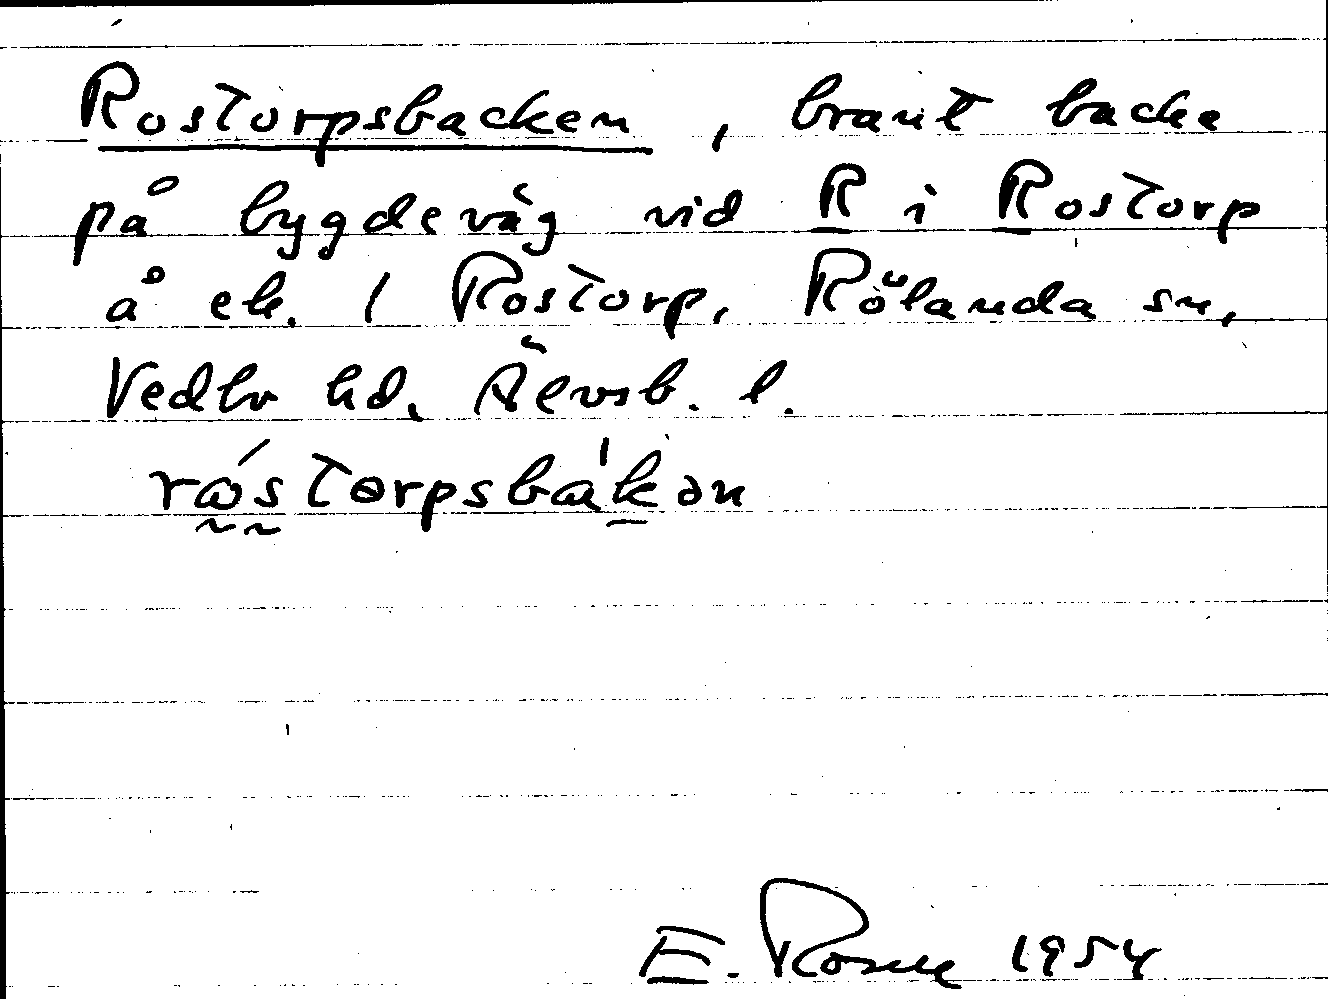 Rostorpsbacken, brant backe
på bygdeväg vid R i Rostorp
å ek. 1 Rostorp, Rölanda sn,
Vedbo hd, Älvsb. l.
råstorpsbakən
E. Rosell 1954